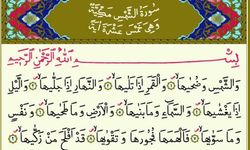 سُورَةُ الشَّمْسِ مَكِّيَّةٌ
وَهِيَ خَمْسَ عَشْرَةَ آيَةً
بِسْمِ اللّٰهِ الرَّحْمٰنِ الرَّحِيمِ
وَالشَّمْسِ وَضُحٰيهَا ۝ وَالْقَمَرِ اِذَا تَلٰيهَا ۝ وَالنَّهَارِ اِذَا جَلّٰيهَا ۝ وَالَّيْلِ
اِذَا يَغْشٰيهَا ۝ وَالسَّمَاءِ وَمَا بَنٰيهَا ۝ وَالْاَرْضِ وَمَا طَحٰيهَا ۝ وَنَفْسٍ
وَمَا سَوّٰيهَا ۝ فَاَلْهَمَهَا فُجُورَهَا وَتَقْوٰيهَا ۝ قَدْ اَفْلَحَ مَنْ زَكّٰيهَا ۝